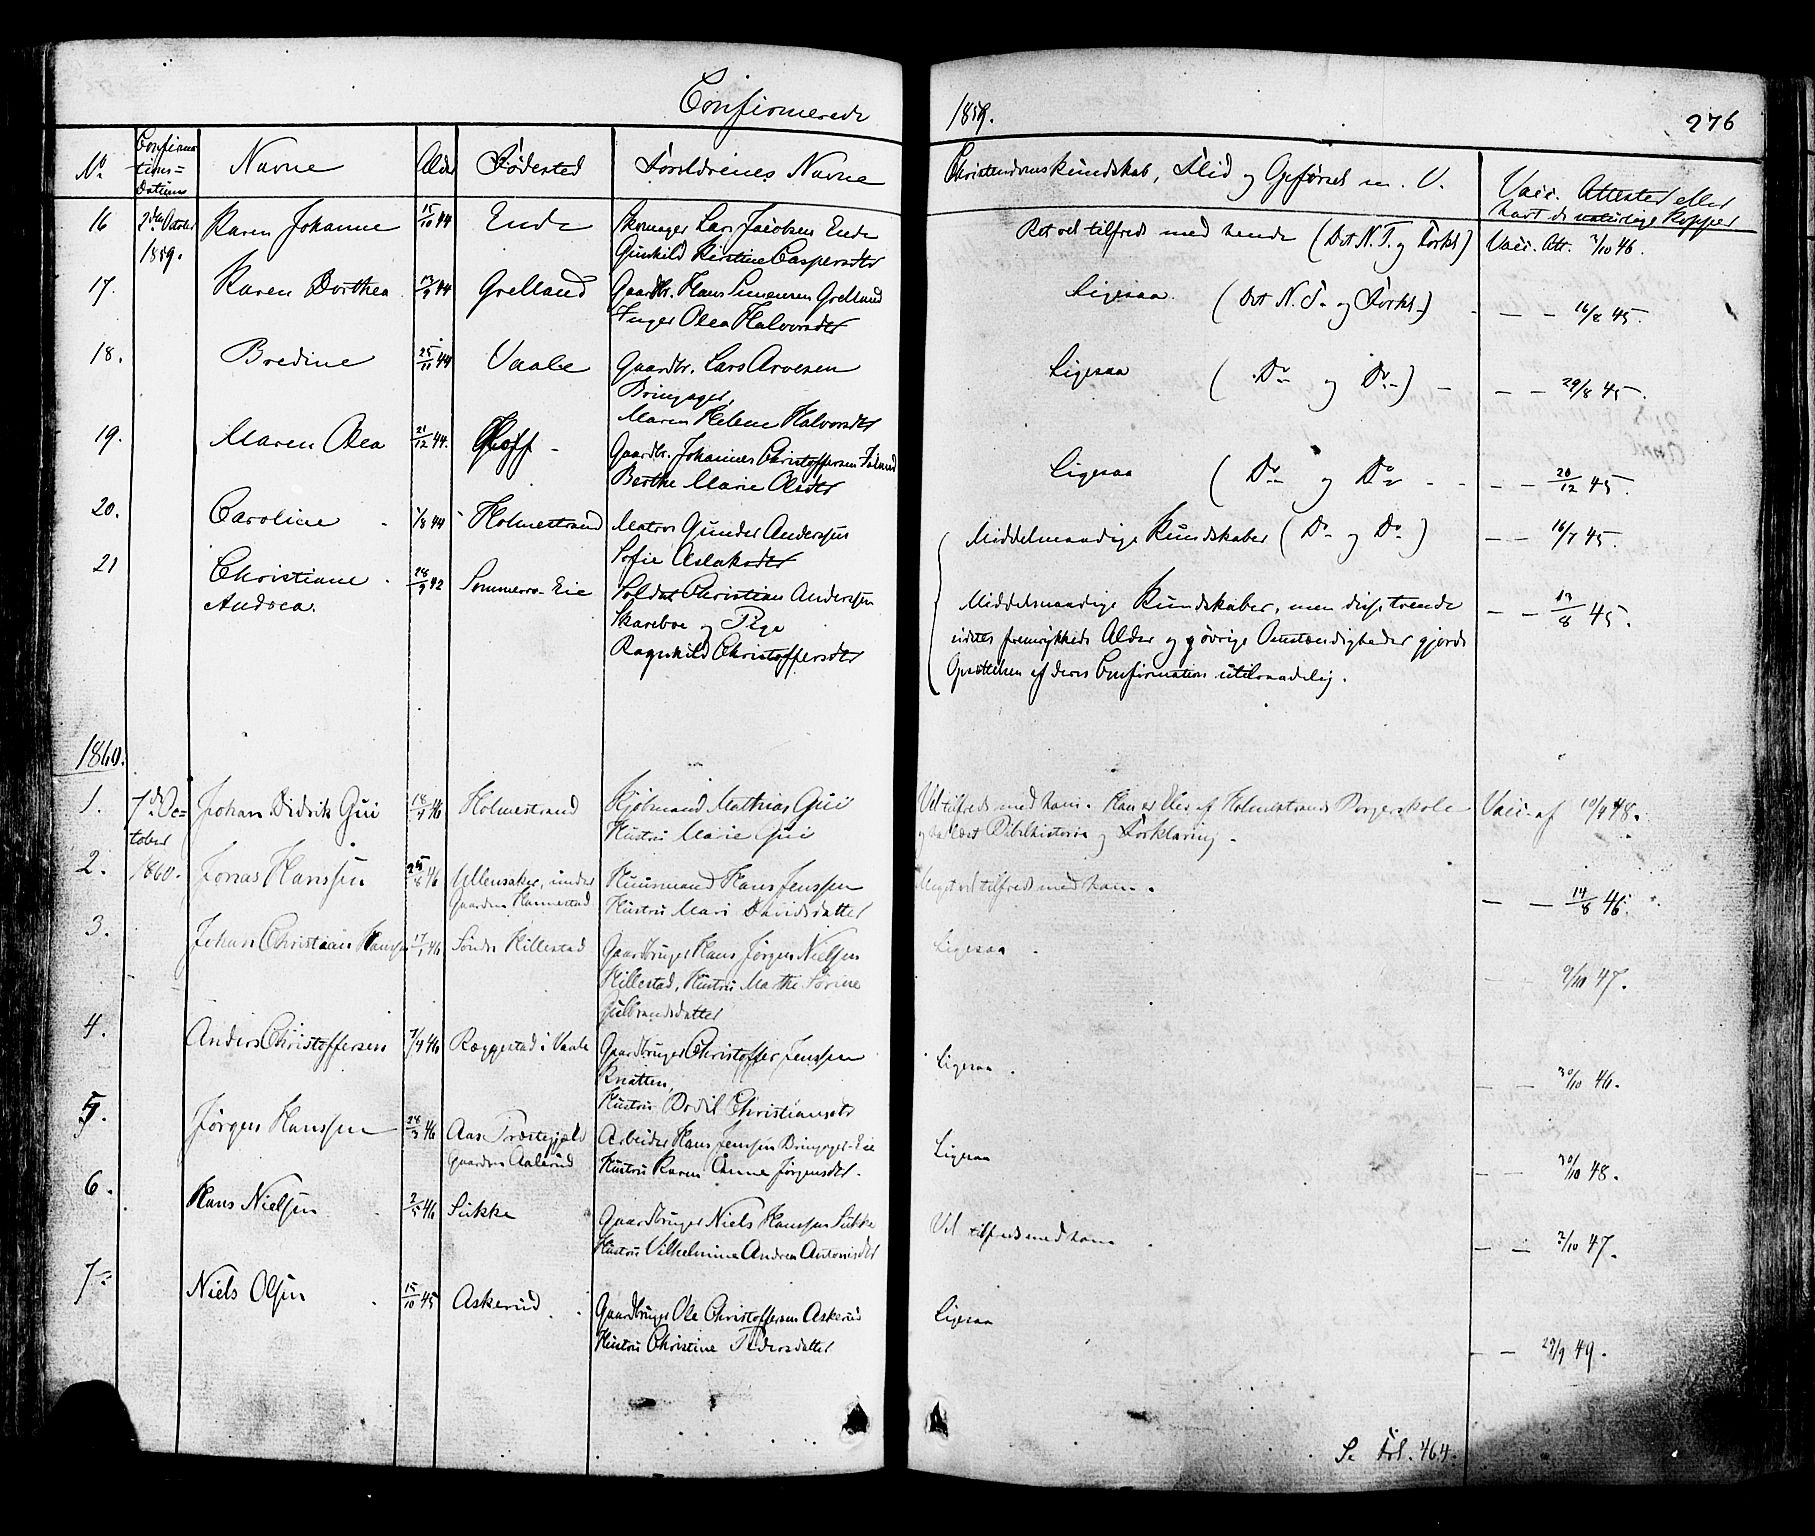 Confirmerede
1859.
276
No
Confirma-
tions-
Datum
Navne
Alder
Fødested
Forældrenes Navne
Christendomskundskab, Flid og Opførsel m. V.
Vacc. Attester eller
havt de naturlige Kopper
16
2den October
1859.
Karen Johanne
15/10 44
Ende
Skomager Lars Jacobsen Ende
Gunhild Kirstine Caspersdtr
Ret vel tilfreds med hende (Det N. T. og Forkl)
Vacc. Att. 3/10 46.
17.
Karen Dorthea
13/9 44
Grelland
Gaardbr. Hans Simensen Grelland
Inger Olea Halvorsdtr
Ligesaa (Det N. T. og Forkl.)
- - 16/8 45.
18.
Bredine
25/11 44
Vaale
Gaardbr. Lars Arvesen
Bringager,
Maren Helene Halvorsdtr
Ligesaa (Do og Do)
- - 29/8 45.
19.
Maren Olea
21/12 44.
Gaardbr. Johannes Christoffersen
Berthe Marie Olsdtr
Ligesaa (Do og Do
- - 20/12 45.
20.
Caroline
1/8 44
Holmestrand
Matros Gunder Anderssen
Sofie Aslaksdtr
Middelmaadige Kundskaber (Do og Do)
- - 16/7 45.
21
Christiane
Andrea.
28/9 42
Sommerro Eie
Soldat Christian Anderssen
Skareboe og Pige
Ragnhild Christoffersdtr
Middelmaadige Kundskaber, men disse trende
sidstes fremrykkede Alder og øvrige Omstændigheder gjorde
Opsættelsen af deres Confirmation utilraadelig.
- - 13/8 45.
1860.
1.
7de Oc-
tober
1860.
Johan Didrik Gui
18/4 46
Holmestrand
Kjøbmand Mathias Gui
Hustru Marie Gui
Vel tilfreds med ham. Han er Elev af Holmestrands Borgerskole
og har læst Bibelhistorie og Forklaring.
Vacc. af 10/9 48.
2.
Jonas Hanssen
25/8 46
Ullensaker, under
Gaarden Hannestad
Huusmand Hans Jenssen
Hustru Mari Davidsdatter
Meget vel tilfreds med ham.
- - 14/8 46.
3.
Johan Christian Hanssen
17/1 46
Søndre Hillestad
Gaardbruger Hans Jørgen Nielsen
Hillestad, Hustru Marthe Sørine
Gulbrandsdatter
Ligesaa.
- - 9/10 47.
4.
Anders Christoffersen
7/4 46
Ræggestad i Vaale
Gaardbruger Christoffer Jenssen
Knatten,
Hustru Bodil Christiansdtr
Ligesaa.
- - 30/10 46.
5.
Jørgen Hanssen
28/3 46
Aas Præstegjæld
Gaarden Aalerud
Arbeider Hans Jenssen Bringager-Eie
Hustru Karen Anne Jørgensdtr.
Ligesaa
- - 30/10 48.
6.
Hans Nielsen
2/5 46
Sukke
Gaardbruger Niels Hanssen Sukke
Hustru Vilhelmine Andrea Antonisdtr
Vel tilfreds med ham.
- - 2/10 47.
7.
Niels Olsen
15/10 45
Askerud
Gaardbruger Ole Christoffersen Askerud
Hustru Christine Pedersdatter
Ligesaa
- - 29/9 49.
Se Fol. 464.